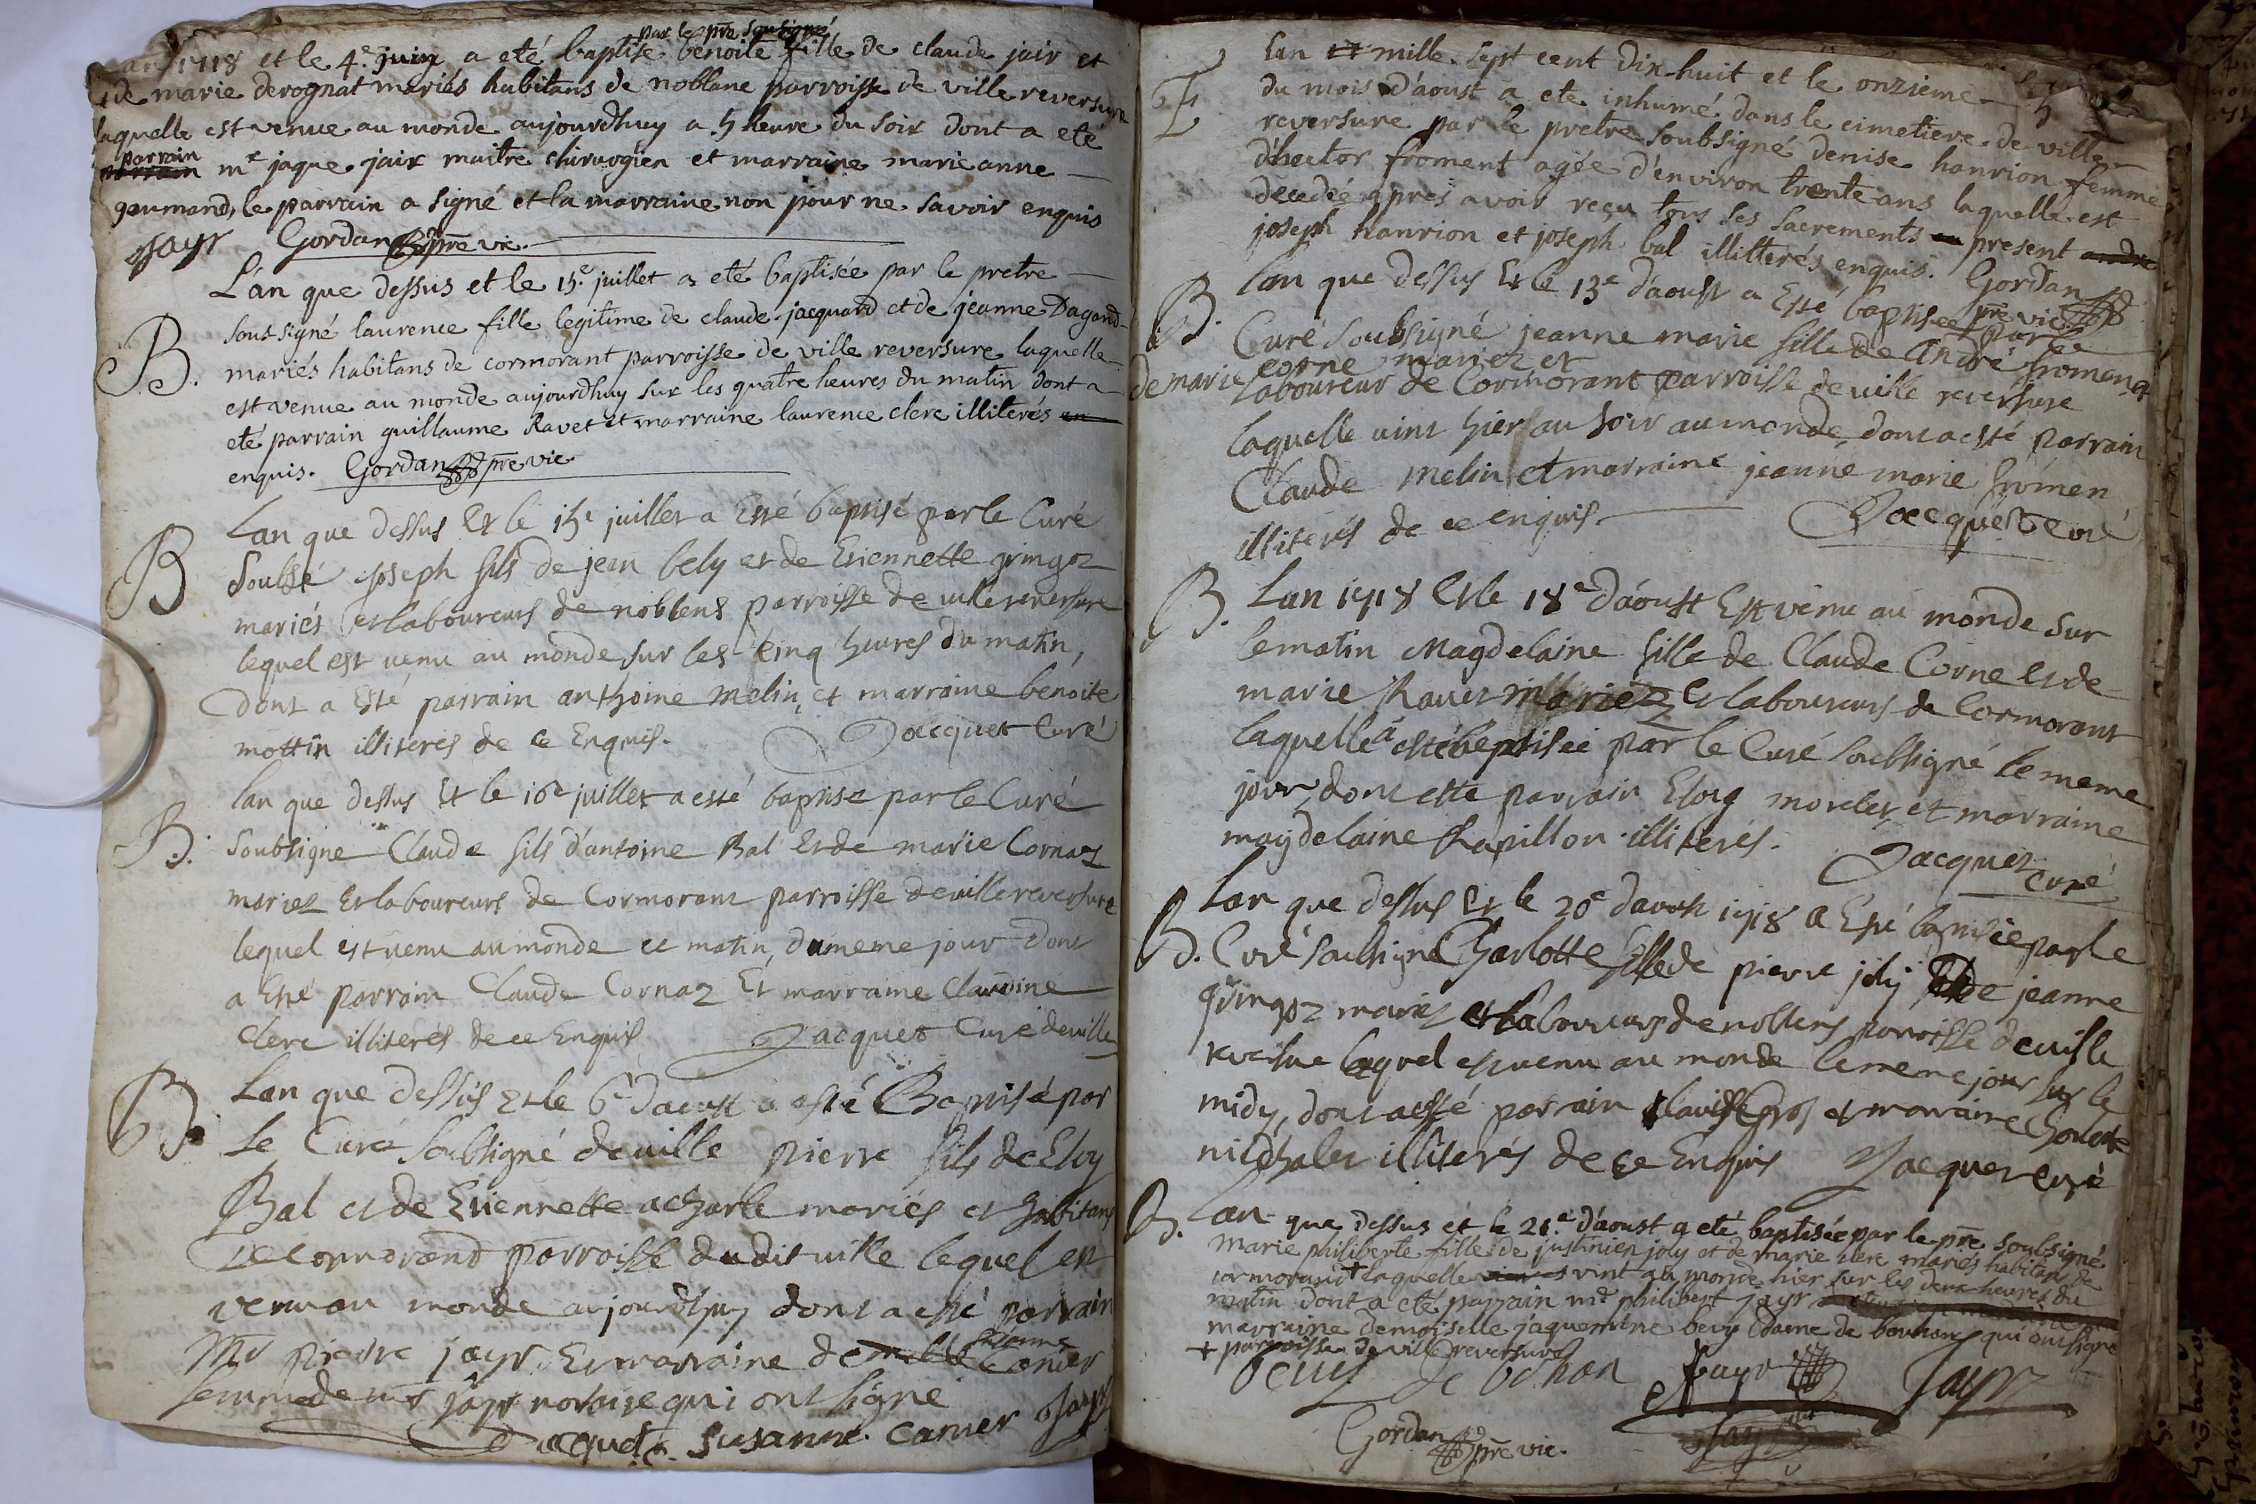 par le pre soubsigné
1718 et le 4e. juin a eté baptise benoite fille de claude jair et
de marie derognat mariés habitans de noblane parroisse de ville reversure
laquelle est venue au monde aujourdhuy a 5 heure du soir dont a eté
parrain
parrain me jaque jair maitre chirurgien et marraine marie anne
gaumand, le parrain a signé et la marraine non pour ne savoir enquis
Jayr Gordan pre vic.
L'an que dessus et le 15e. juillet a eté baptisée par le pretre
B. soussigné laurence fille legitime de claude jacquard et de jeanne Dagand
mariés habitans de cormorant parroisse de ville reversure laquelle
est venue au monde aujourdhuy sur les quatre heures du matin dont a
eté parrain guillaume Ravet et marraine laurence clerc illiterés
enquis. Gordan pre vic
Lan que dessus Et le 15e juillet a Esté baptisé par le Curé
B Soubsé joseph fils de jean bely et de Etiennette gringoz
mariés et laboureurs de noblens parroisse de ville reversure
lequel est venu au monde sur les Cinq heures du matin,
Dont a Esté parrain anthoine melin, et marraine benoite
mottin illiteres de ce Enquis. Jacquet Curé
lan que dessus Et le 16e juillet a esté baptisé par le Curé
B. Soubsigne Claude fils d'antoine Bal Et de marie Cornaz
mariez Et laboureurs de Cormorant parroisse de ville reversure
lequel est venu au monde ce matin, du meme jour dont
a Esté parrain Claude Cornaz Et marraine Claudine
Clerc illiterés de ce Enquis Jacquet Curé de ville
Lan que dessus et le 6e d'aoust a esté Baptisé par
B. Le Curé Soubsigné de ville pierre fils de Eloy
Bal et de Etiennette acharle mariés et habitans
de cormorand parroisse du dit ville lequel est
venu au monde aujourd'huy dont a esté parrain
susanne
Mr pierre jayr. Et marraine canier
femme de mr jayr notaire qui ont signé
Jacquet c. Susanne canier Jayr
Lan mille sept cent dix-huit et le onzieme
du mois d'aoust a eté inhumé dans le cimetiere de ville
reversure par le pretre soubsigné denise hanrion femme
d'hector froment agée d'environ trente ans laquelle est
decedée apres avoir reçu tous les sacrements present
joseph hanrion et joseph bal illitterés enquis. Gordan
pre vic
B. lan que dessus Et le 13e d'aoust a Esté baptisée par le
Curé Soubsigné jeanne marie fille de André fromen et
de marie corne mariez et
laboureur de Cormorant parroisse de ville reversure
laquelle vint hier au soir au monde, dont a esté parrain
Claude melin et marraine jeanne marie fromen
illiterés de ce enquis. Jacquet Curé
B. Lan 1718 Et le 18e d'aoust Est venu au monde sur
le matin Magdelaine fille de Claude Corne et de
marie Ravet mariez Et laboureurs de Cormorant
laquelle a esté baptisée par le Curé soubsigné le meme
jour, dont esté parrain Eloy morelet, et marraine
magdelaine Papillon illiterés. Jacquet
Curé
Lan que dessus Et le 20e d'aoust 1718 a Esté baptisée par le
B. Curé soubsigné Charlotte fille de pierre joly et de jeanne
gringoz mariez et laboureurs de noblens parroisse de ville
reversure laquel est venu au monde le meme jour sur le
midy, dont a esté parrain Claude gros et marraine Charlotte
illiterés de ce Enquis Jacquet Curé
B. Lan que dessus et le 21e d'aoust a eté baptisée par le pre soubsigné
marie philiberte fille de justinien joly et de marie clerc mariés habitans de
cormorand + laquelle vint au monde hier sur les deux heures du
matin dont a eté parrain mr philibert jayr
marraine demoiselle jaquemine bevy dame de bouhans qui ont signé
+ parroisse de ville reversure
Jayr Jayr
Gordan pre vic.